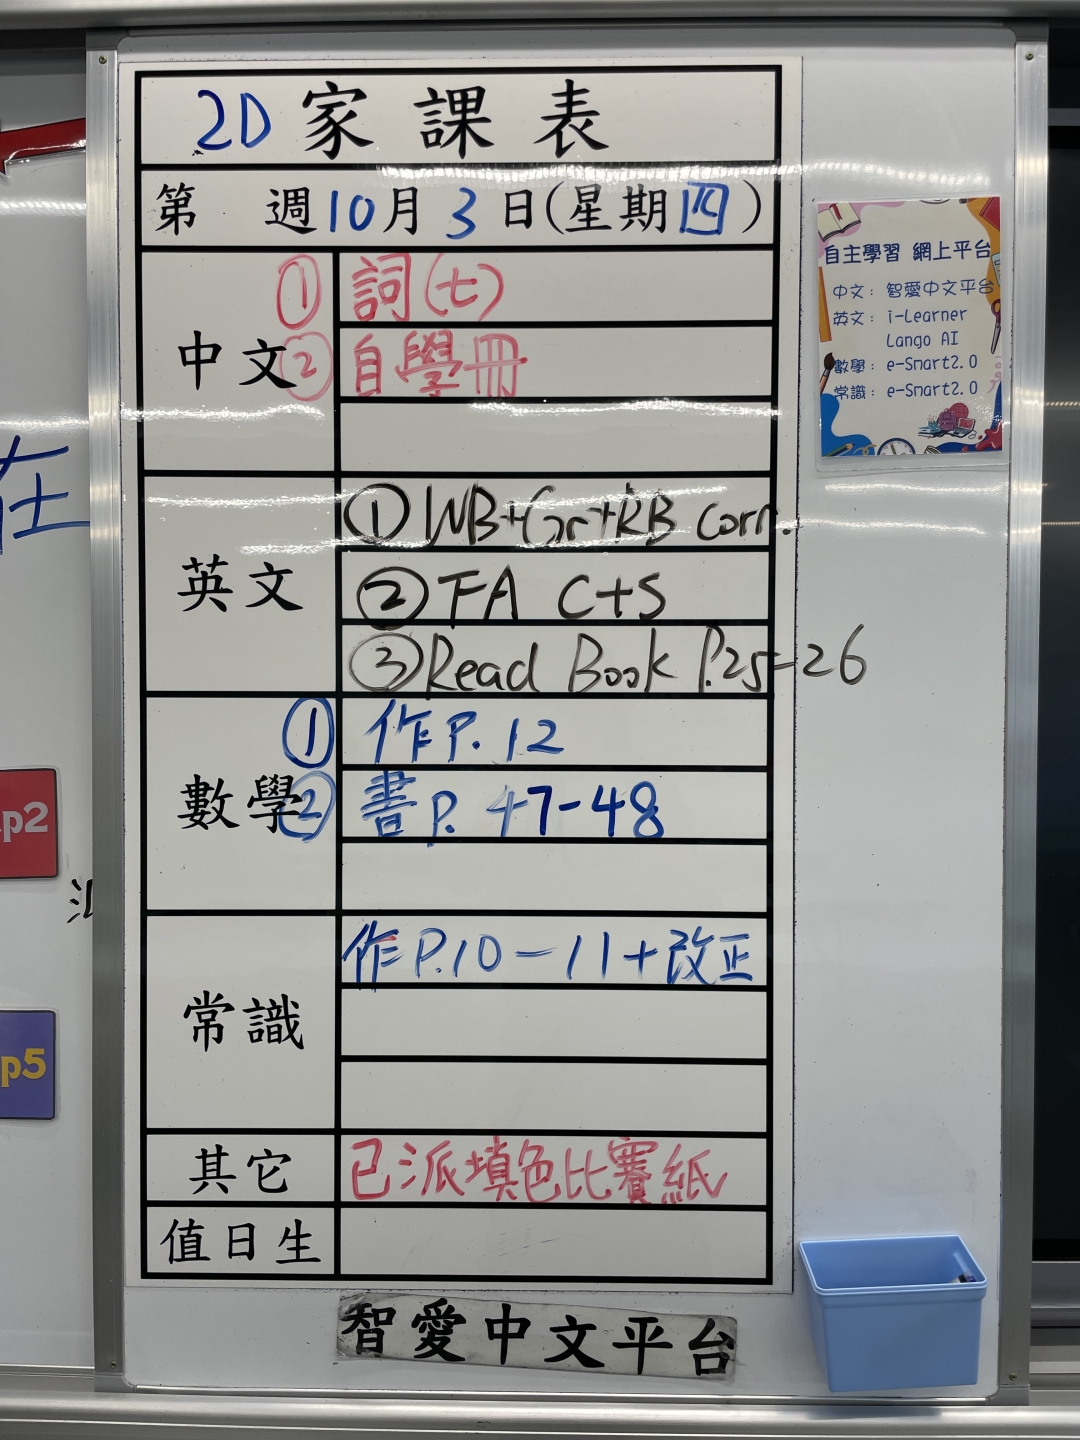 2D家課表
第 週10月3日(星期四)
中文
① 詞(七)
② 自學冊
英文
① WB+Gr+RB corr.
② FA C+S
③ Read Book P.25-26
數學
① 作P.12
② 書P.47-48
常識
作P.10-11+改正
其它
已派填色比賽紙
值日生
智愛中文平台
自主學習 網上平台
中文: 智愛中文平台
英文: i-Learner
Lango AI
數學: e-Smart2.0
常識: e-Smart2.0
在
p2
p5